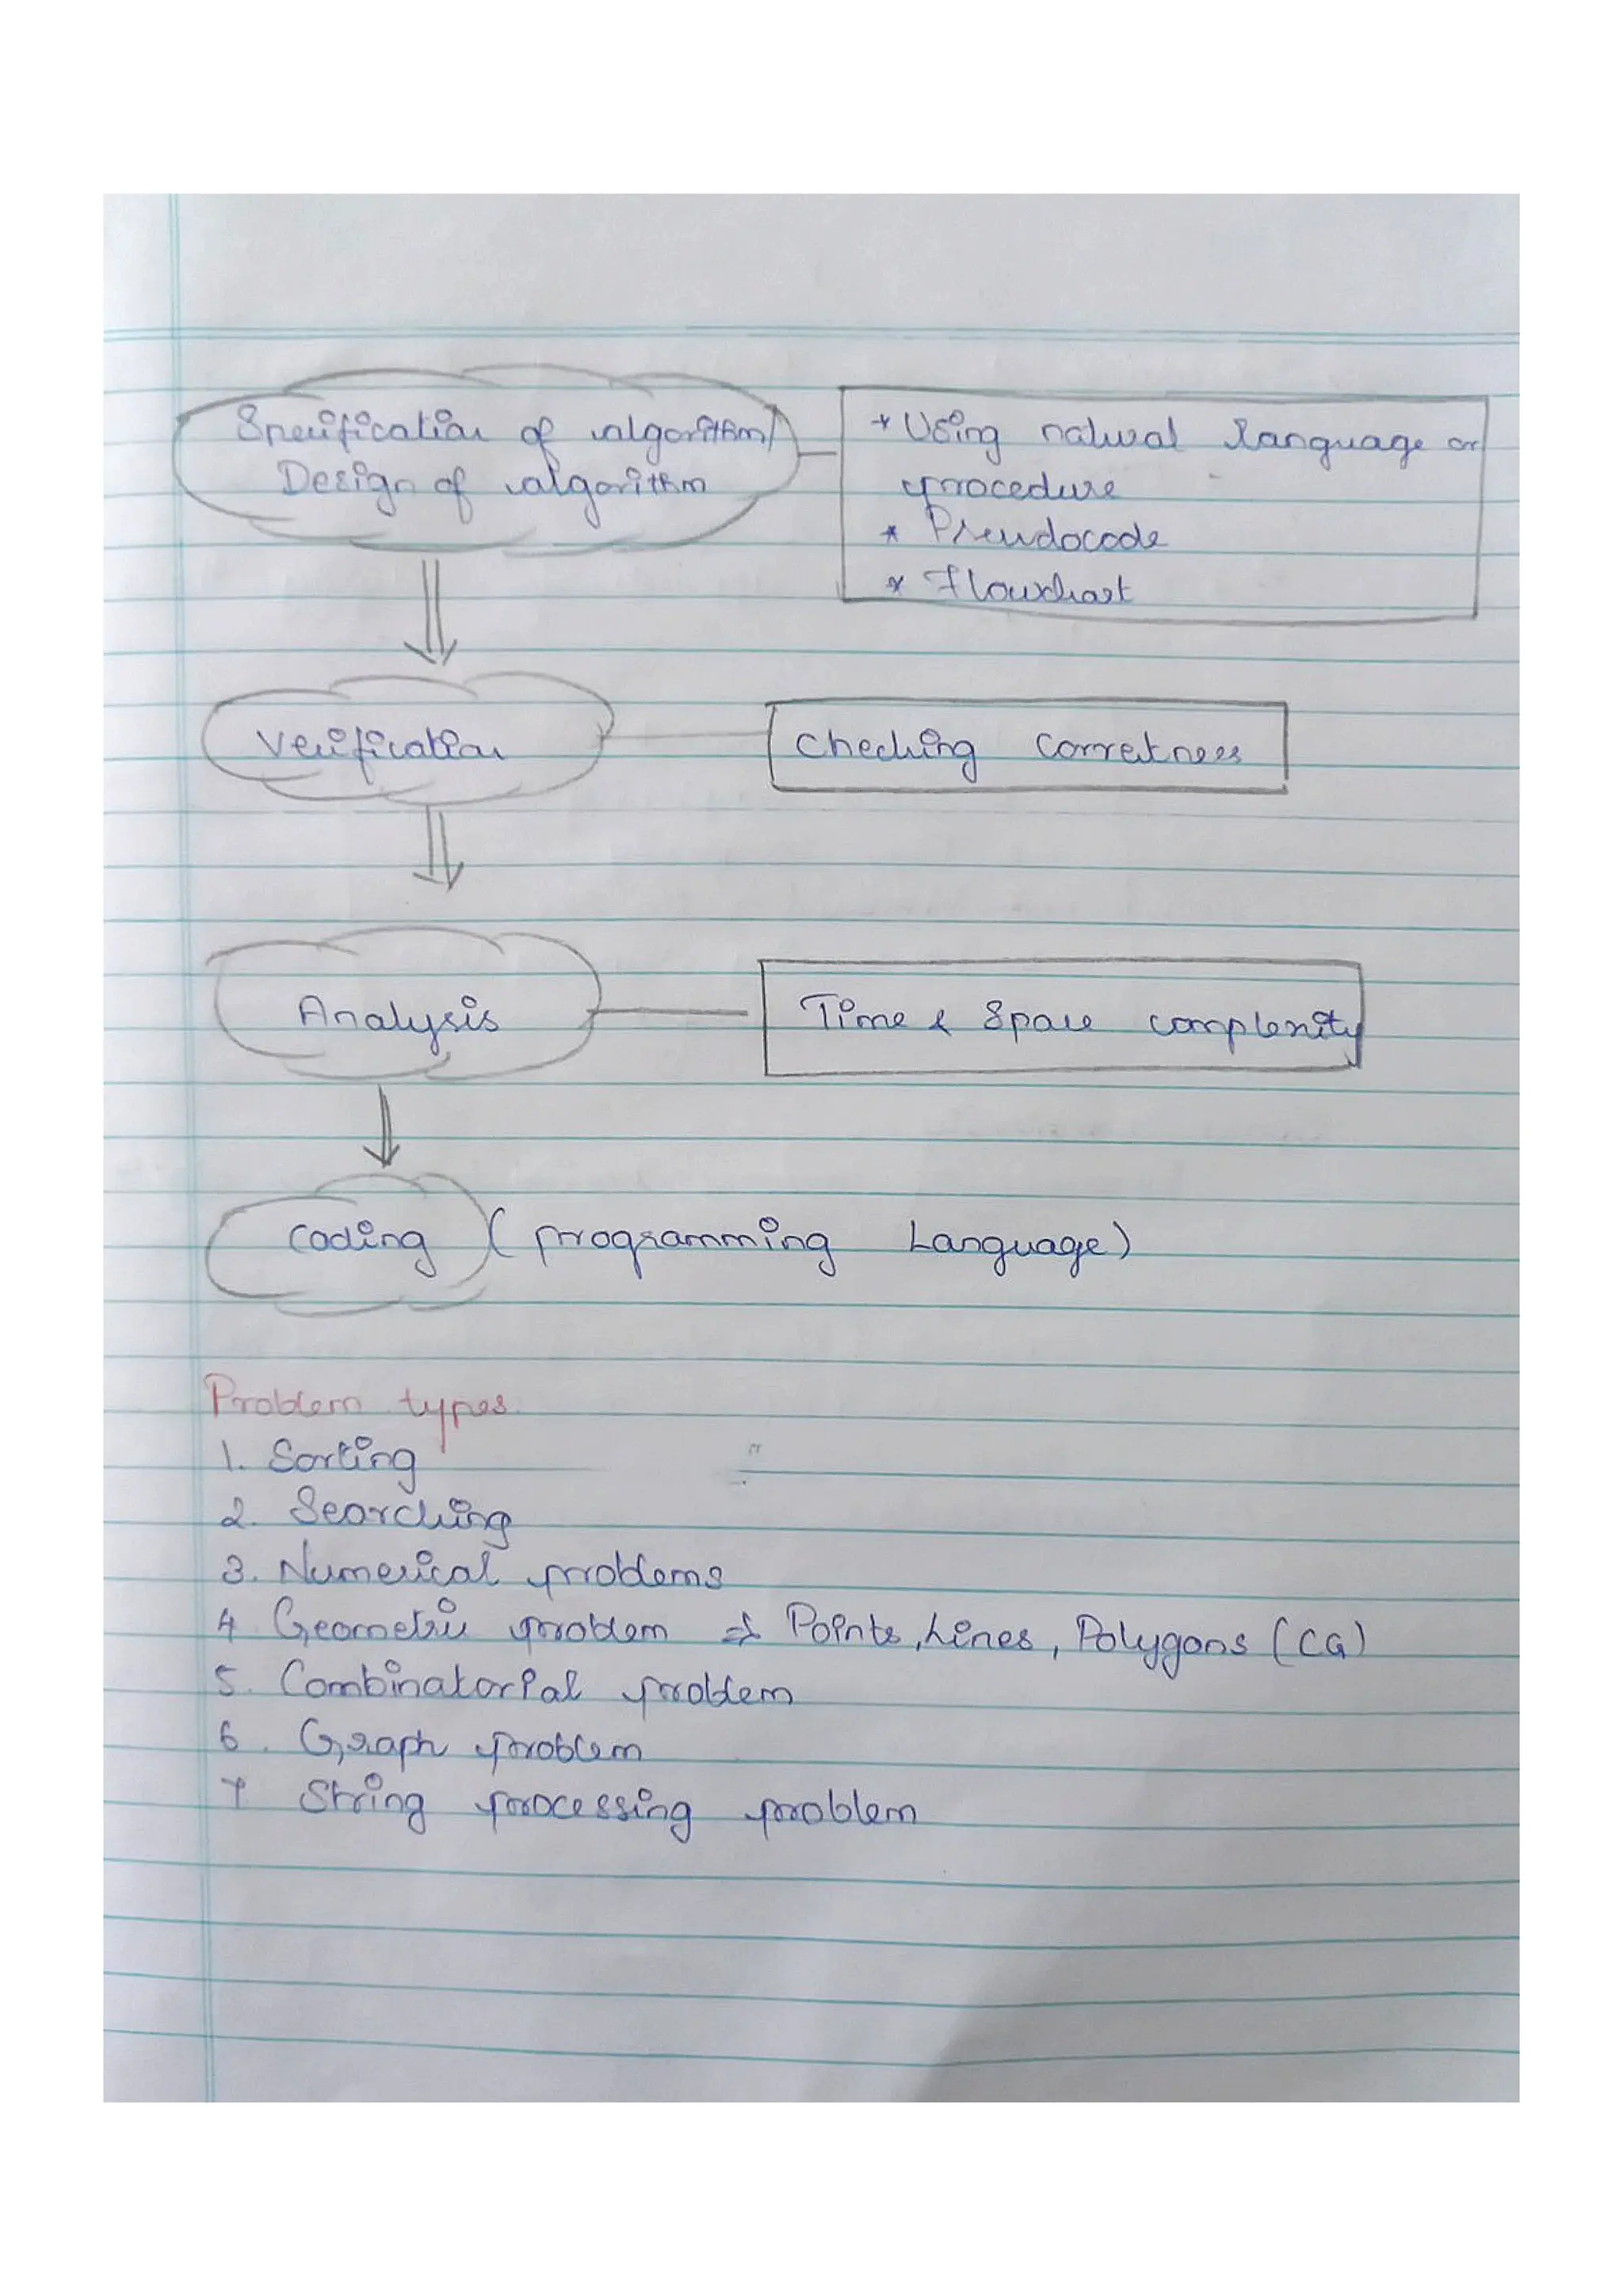 Specification of algorithm/
Design of algorithm
* Using natural language or
procedure
* Pseudocode
* Flowchart
Verification
Checking Correctness
Analysis
Time & Space complexity
Coding (programming Language)
Problem types
1. Sorting
2. Searching
3. Numerical problems
4 Geometric problem ⇒ Points, Lines, Polygons (CG)
5. Combinatorial problem
6. Graph problem
7 String processing problem